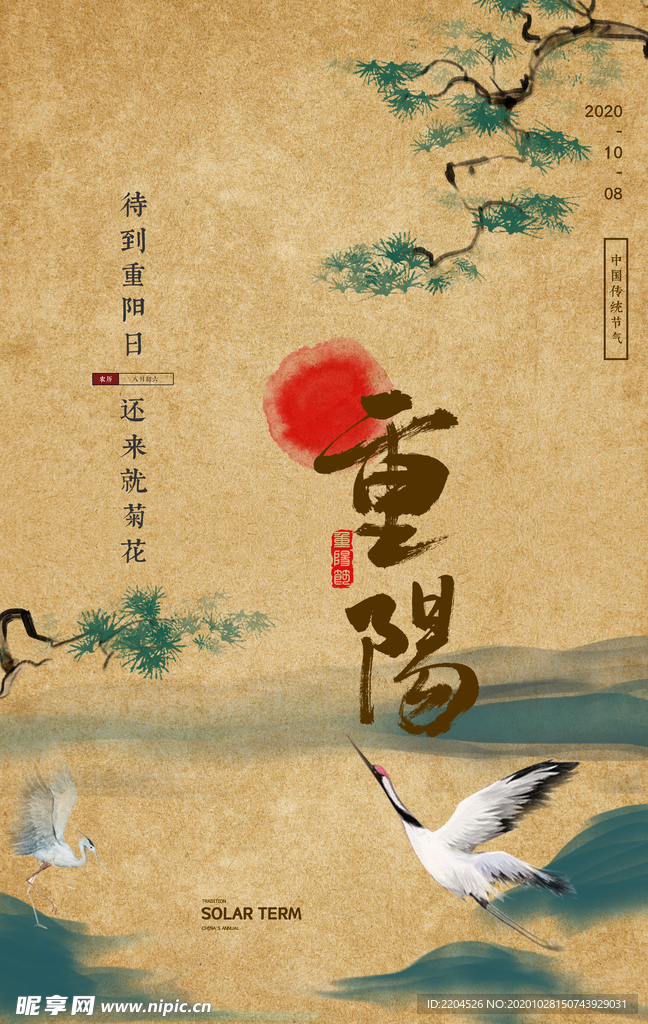 2020
-
10
-
08
中国传统节气
待到重阳日
农历 八月廿六
还来就菊花
重陽
重陽節
TRADITION
SOLAR TERM
CHINA'S ANNUAL
昵享网 www.nipic.cn
ID:2204526 NO:20201028150743929031